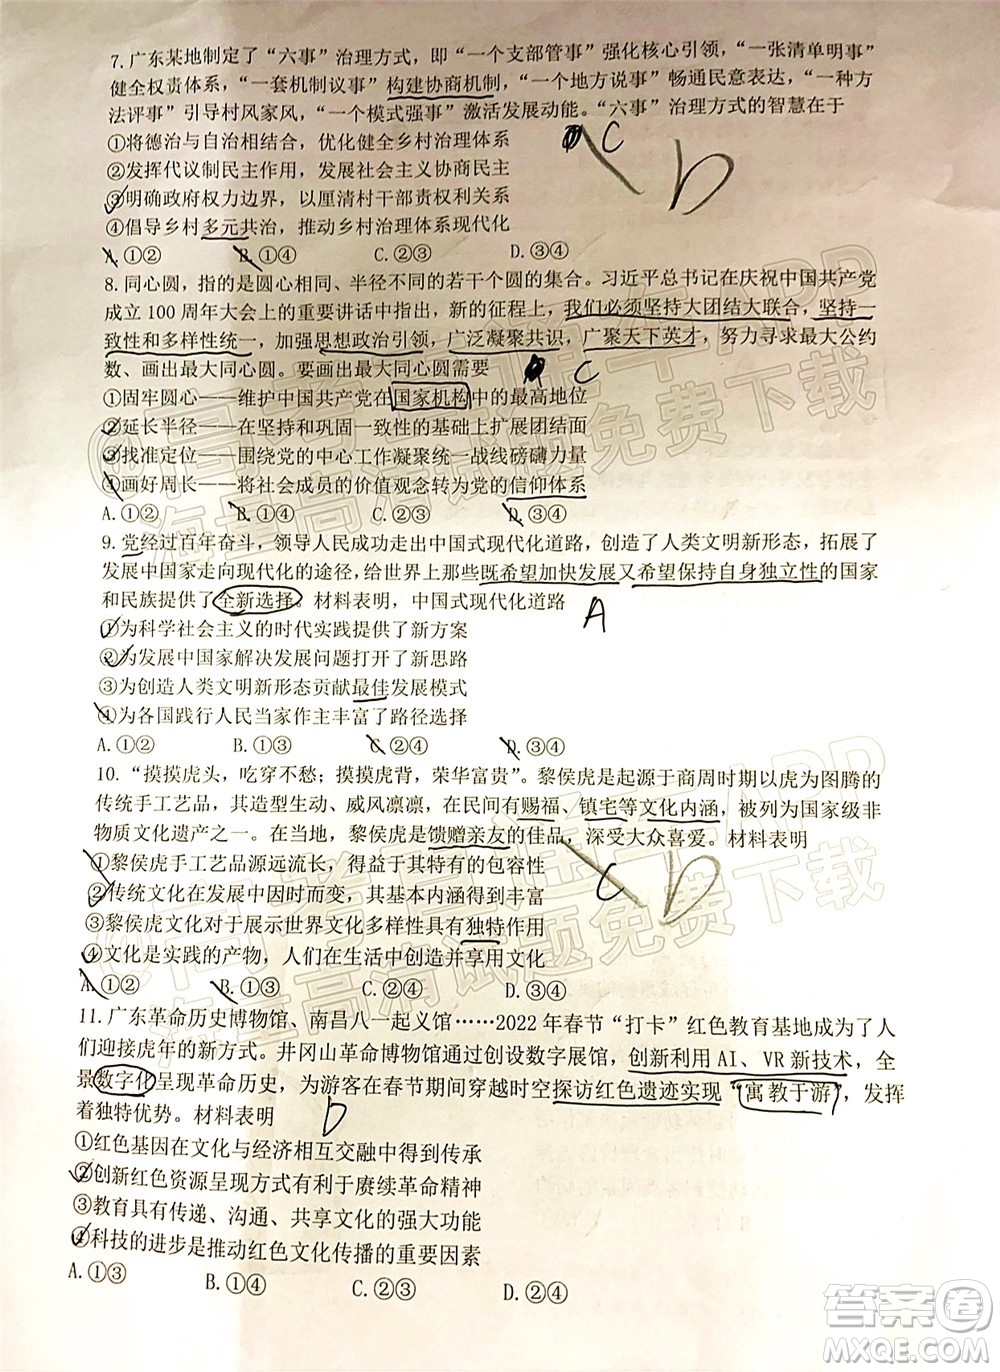 7.广东某地制定了“六事”治理方式，即“一个支部管事”强化核心引领，“一张清单明事”
健全权责体系，“一套机制议事”构建协商机制，“一个地方说事”畅通民意表达，“一种方
法评事”引导村风家风，“一个模式强事”激活发展动能。“六事”治理方式的智慧在于
①将德治与自治相结合，优化健全乡村治理体系
C
②发挥代议制民主作用，发展社会主义协商民主
D
③明确政府权力边界，以厘清村干部责权利关系
④倡导乡村多元共治，推动乡村治理体系现代化
A.①② B.①④ C.②③ D.③④
8.同心圆，指的是圆心相同、半径不同的若干个圆的集合。习近平总书记在庆祝中国共产党
成立 100 周年大会上的重要讲话中指出，新的征程上，我们必须坚持大团结大联合，坚持一
致性和多样性统一，加强思想政治引领，广泛凝聚共识，广聚天下英才，努力寻求最大公约
数、画出最大同心圆。要画出最大同心圆需要
C
①固牢圆心——维护中国共产党在国家机构中的最高地位
②延长半径——在坚持和巩固一致性的基础上扩展团结面
③找准定位——围绕党的中心工作凝聚统一战线磅礴力量
④画好周长——将社会成员的价值观念转为党的信仰体系
A.①② B.①④ C.②③ D.③④
9.党经过百年奋斗，领导人民成功走出中国式现代化道路，创造了人类文明新形态，拓展了
发展中国家走向现代化的途径，给世界上那些既希望加快发展又希望保持自身独立性的国家
和民族提供了全新选择。材料表明，中国式现代化道路
A
①为科学社会主义的时代实践提供了新方案
②为发展中国家解决发展问题打开了新思路
③为创造人类文明新形态贡献最佳发展模式
④为各国践行人民当家作主丰富了路径选择
A.①② B.①③ C.②④ D.③④
10.“摸摸虎头，吃穿不愁；摸摸虎背，荣华富贵”。黎侯虎是起源于商周时期以虎为图腾的
传统手工艺品，其造型生动、威风凛凛，在民间有赐福、镇宅等文化内涵，被列为国家级非
物质文化遗产之一。在当地，黎侯虎是馈赠亲友的佳品，深受大众喜爱。材料表明
①黎侯虎手工艺品源远流长，得益于其特有的包容性
C
D
②传统文化在发展中因时而变，其基本内涵得到丰富
③黎侯虎文化对于展示世界文化多样性具有独特作用
④文化是实践的产物，人们在生活中创造并享用文化
A.①② B.①③ C.②④ D.③④
11.广东革命历史博物馆、南昌八一起义馆……2022 年春节“打卡”红色教育基地成为了人
们迎接虎年的新方式。井冈山革命博物馆通过创设数字展馆，创新利用 AI、VR 新技术，全
景数字化呈现革命历史，为游客在春节期间穿越时空探访红色遗迹实现“寓教于游”，发挥
着独特优势。材料表明
D
①红色基因在文化与经济相互交融中得到传承
②创新红色资源呈现方式有利于赓续革命精神
③教育具有传递、沟通、共享文化的强大功能
④科技的进步是推动红色文化传播的重要因素
A.①③ B.①④ C.②③ D.②④
答案卷
MXQE.COM